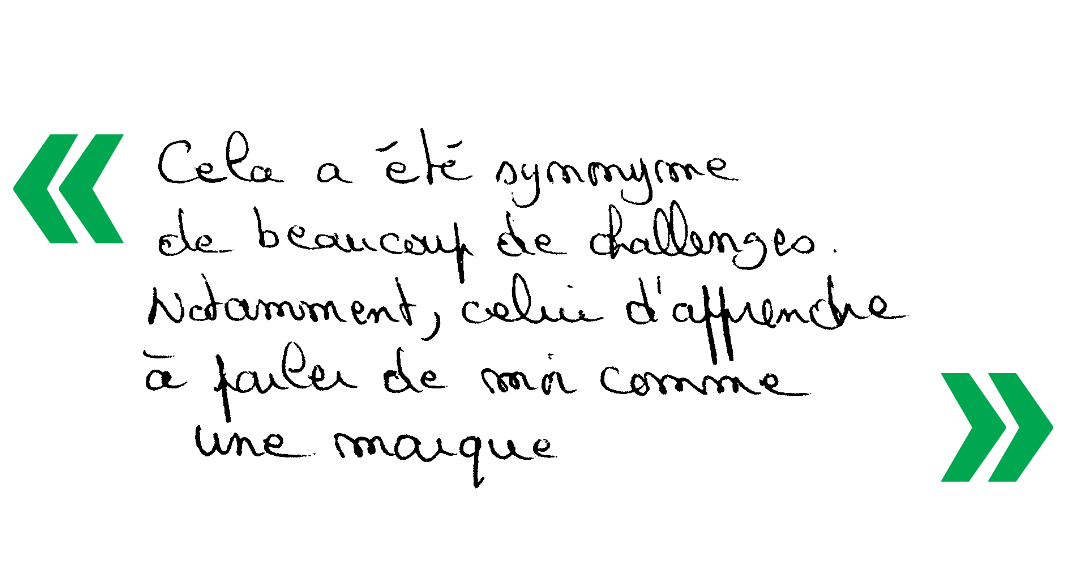 « Cela a été synonyme
de beaucoup de challenges.
Notamment, celui d'apprendre
à parler de moi comme
une marque »